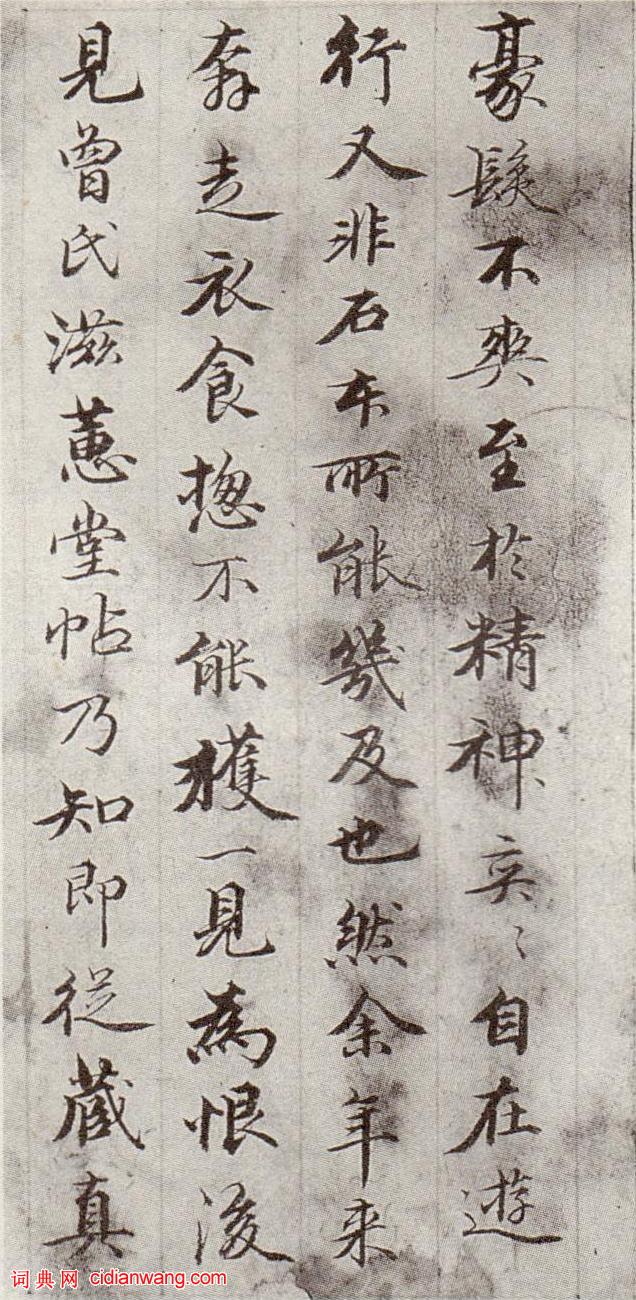 豪髮不爽至於精神奕〻自在遊
行又非石本所能幾及也然余年来
奔走衣食揔不能獲一見為恨後
見曾氏滋蕙堂帖乃知即從藏真
词典网 cidianwang.com